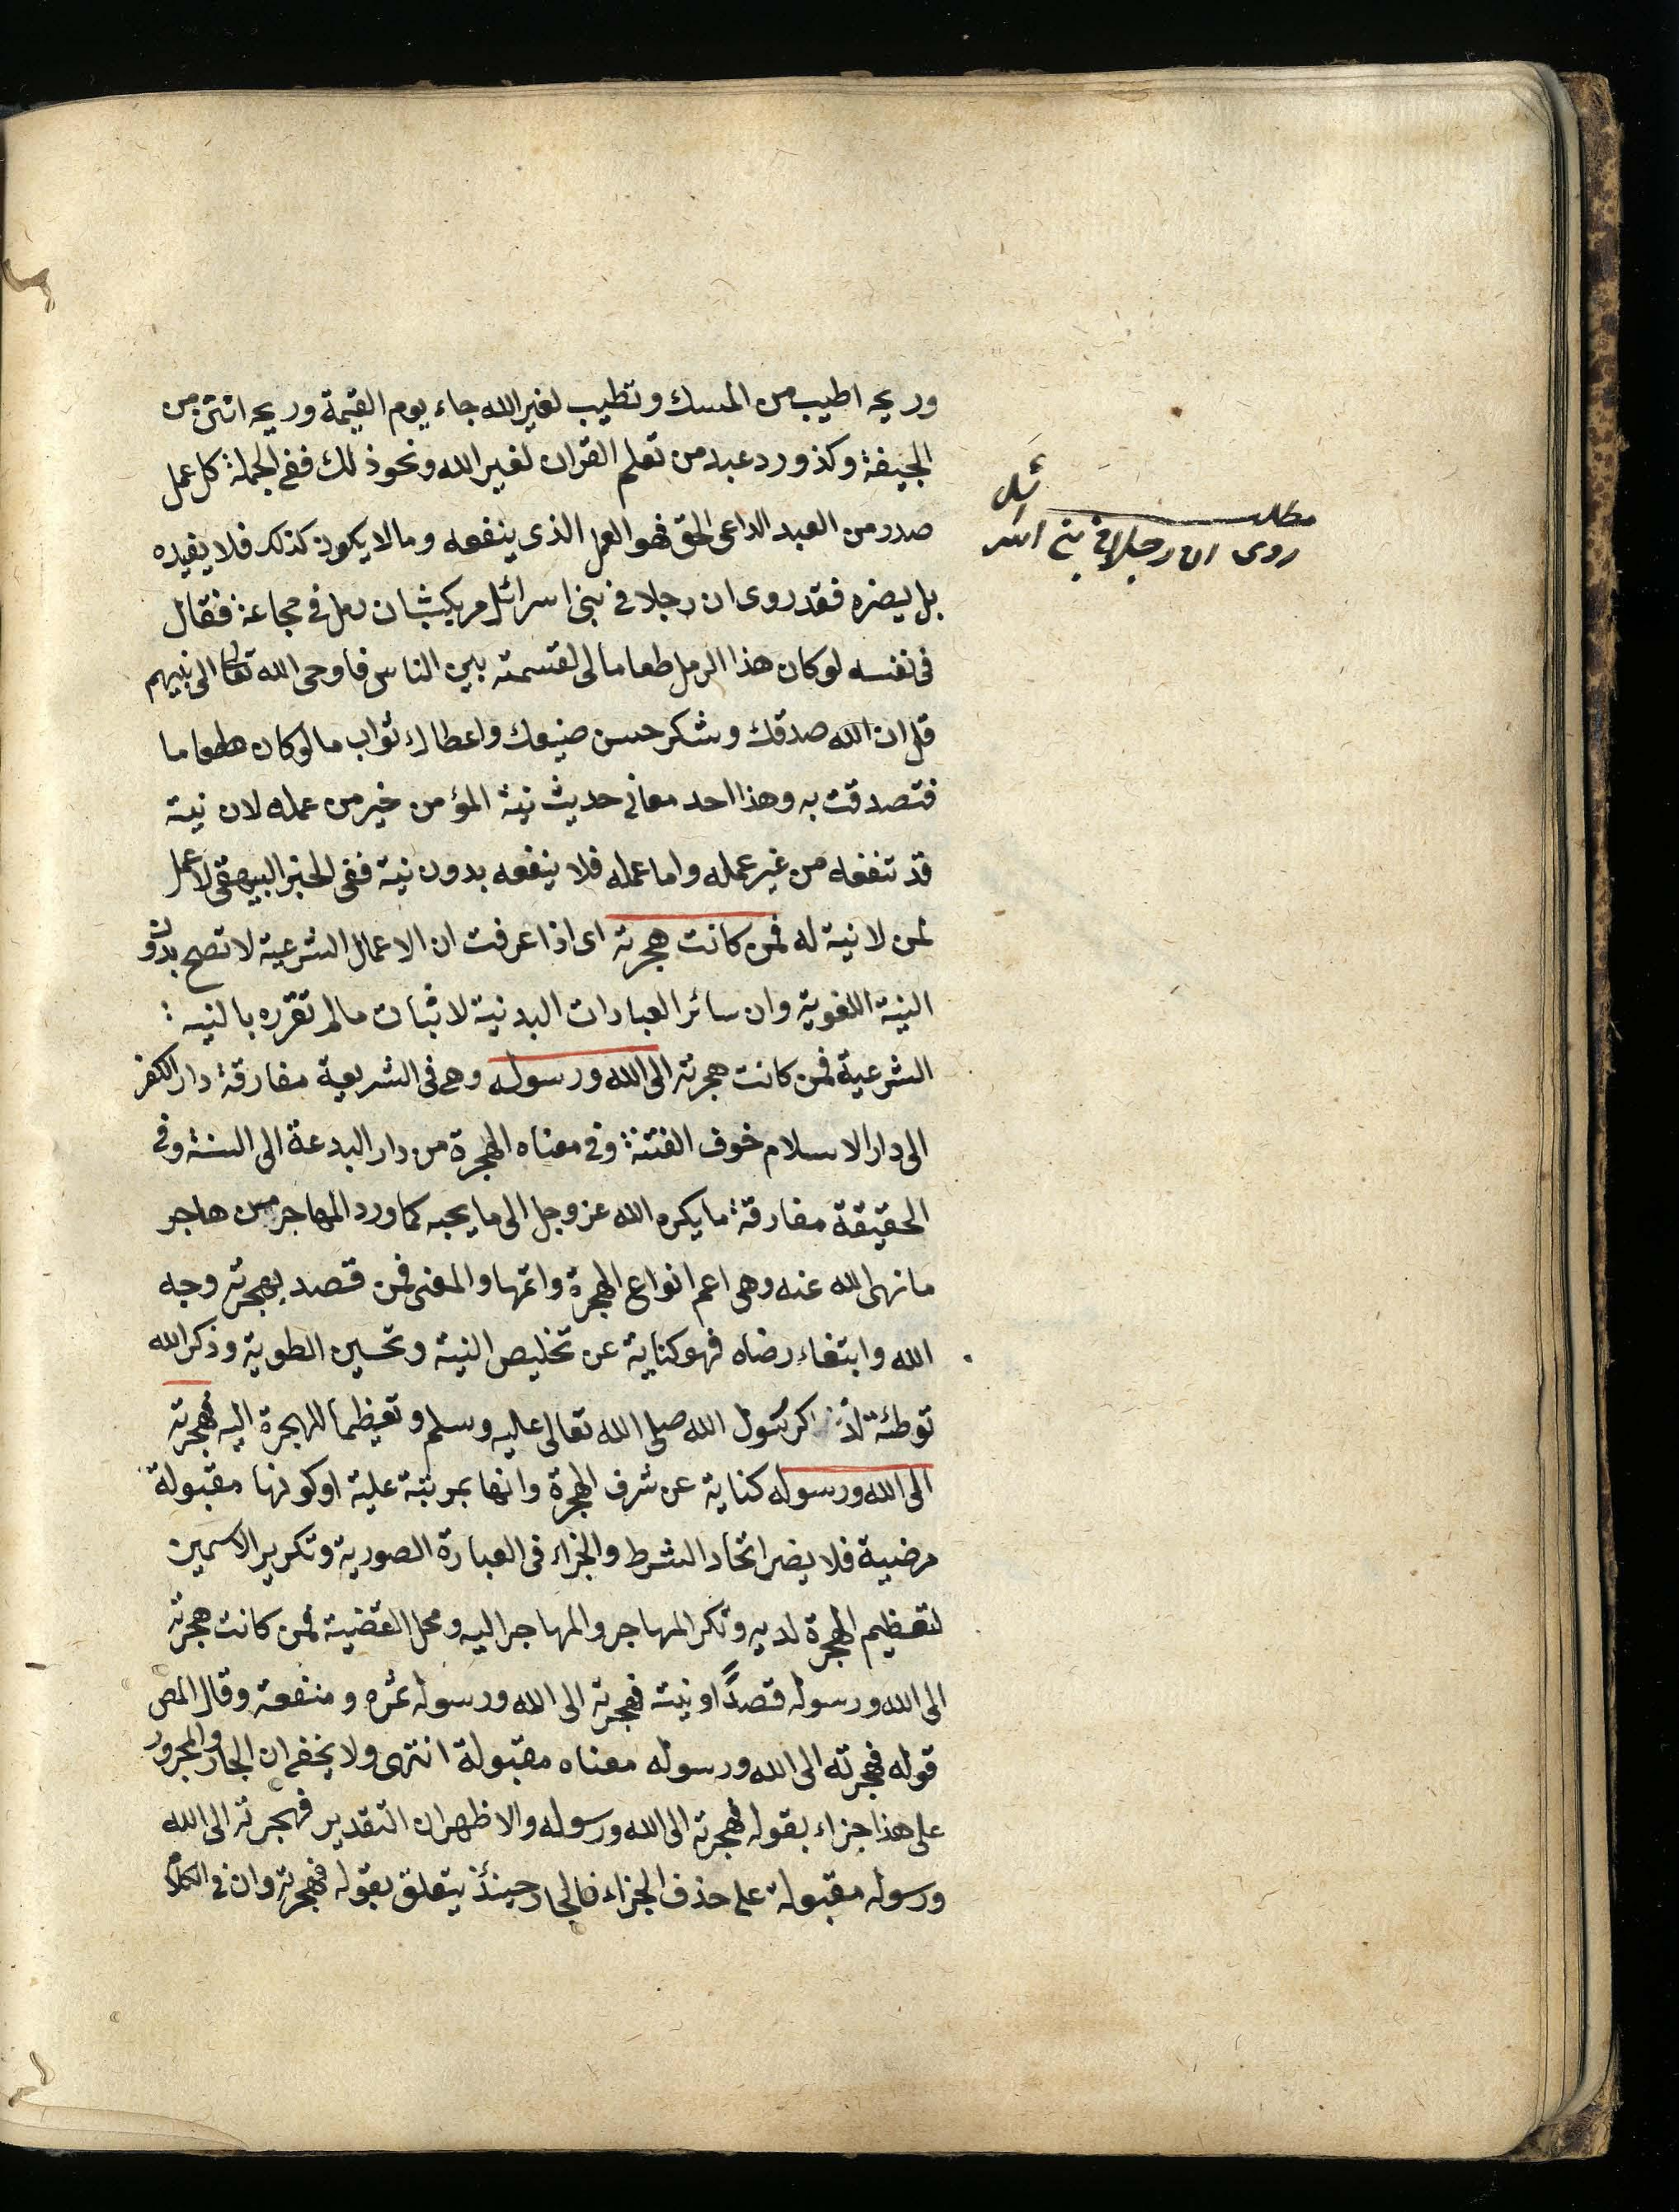 وريحه اطيب من المسك وتطيب لغير الله جاء يوم القيمة وريحه انتن من
الجيفة وكذ ورد عبد من تعلم القران لغير الله ونحو ذلك ففى الجملة كل عمل
صدر من العبد الداعى الحق فهو العمل الذى ينفعه ومالا يكون كذلك فلا يفيده
بل يضره فقد روى ان رجلا فى بنى اسرائل مر بكيثان رمل فى مجاعة فقال
فى نفسه لو كان هذا الرمل طعاما لى لقسمته بين الناس فاوحى الله تعالى الى نبيهم
قل ان الله صدقك وشكر حسن صنيعك واعطاك ثواب ما لو كان طعاما
فتصدقت به وهذا احد معانى حديث نية المؤمن خير من عمله لان نيته
قد تنفعه من غير عمله واما عمله فلا ينفعه بدون نية ففى الخبر البيهقى لا عمل
لمن لا نية له فمن كانت هجرته اى اذا عرفت ان الاعمال الشرعية لا تصح بدون
النية اللغوية وان سائر العبادات البدنية لا ثبات مالم تقرره بالنيه
الشرعية فمن كانت هجرته الى الله ورسوله وهى فى الشريعة مفارقة دار الكفر
الى دار الاسلام خوف الفتنة وفى معناه الهجرة من دار البدعة الى السنة وفى
الحقيقة مفارقة ما يكره الله عز وجل الى ما يحبه كما ورد المهاجر من هاجر
ما نهى الله عنه وهى اعم انواع الهجرة واتمها والمعنى فمن قصد بهجرته وجه
الله وابتغاء رضاه فهو كناية عن تخليص النية وتحسين الطوية وذكر الله
توطئة لذكر رسول الله صلى الله تعالى عليه وسلم وتعيظما للهجرة اليه فهجرته
الى الله ورسوله كناية عن شرف الهجرة وانها بمرتبة علية او كونها مقبولة
مرضية فلا يضر اتحاد الشرط والجزاء فى العبارة الصورية وتكرير الاسمين
لتعظيم الهجرة لديه وتكر المهاجر والمهاجر اليه ومحل القضية فمن كانت هجرته
الى الله ورسوله قصدًا ونية فهجرته الى الله ورسوله ثمره ومنفعة وقال المص
قوله فهجرته الى الله ورسوله معناه مقبولة انتهى ولا يخفى ان الجار والمجرور
على هذا جزاء بقوله فهجرته الى الله ورسوله والاظهران التقدير فهجرته الى الله
ورسوله مقبولة على حذف الجزاء فالجار حينئذ يتعلق بقوله فهجرته وان فى الكلام
مطلب
روى ان رجلا فى بنى اسرائل